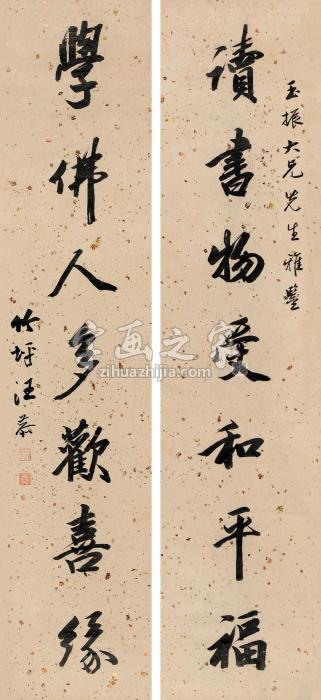 玉振大兄先生雅鑒
讀書物受和平福
學佛人多歡喜緣
竹坪汪恭
字画之家
zihuazhijia.com